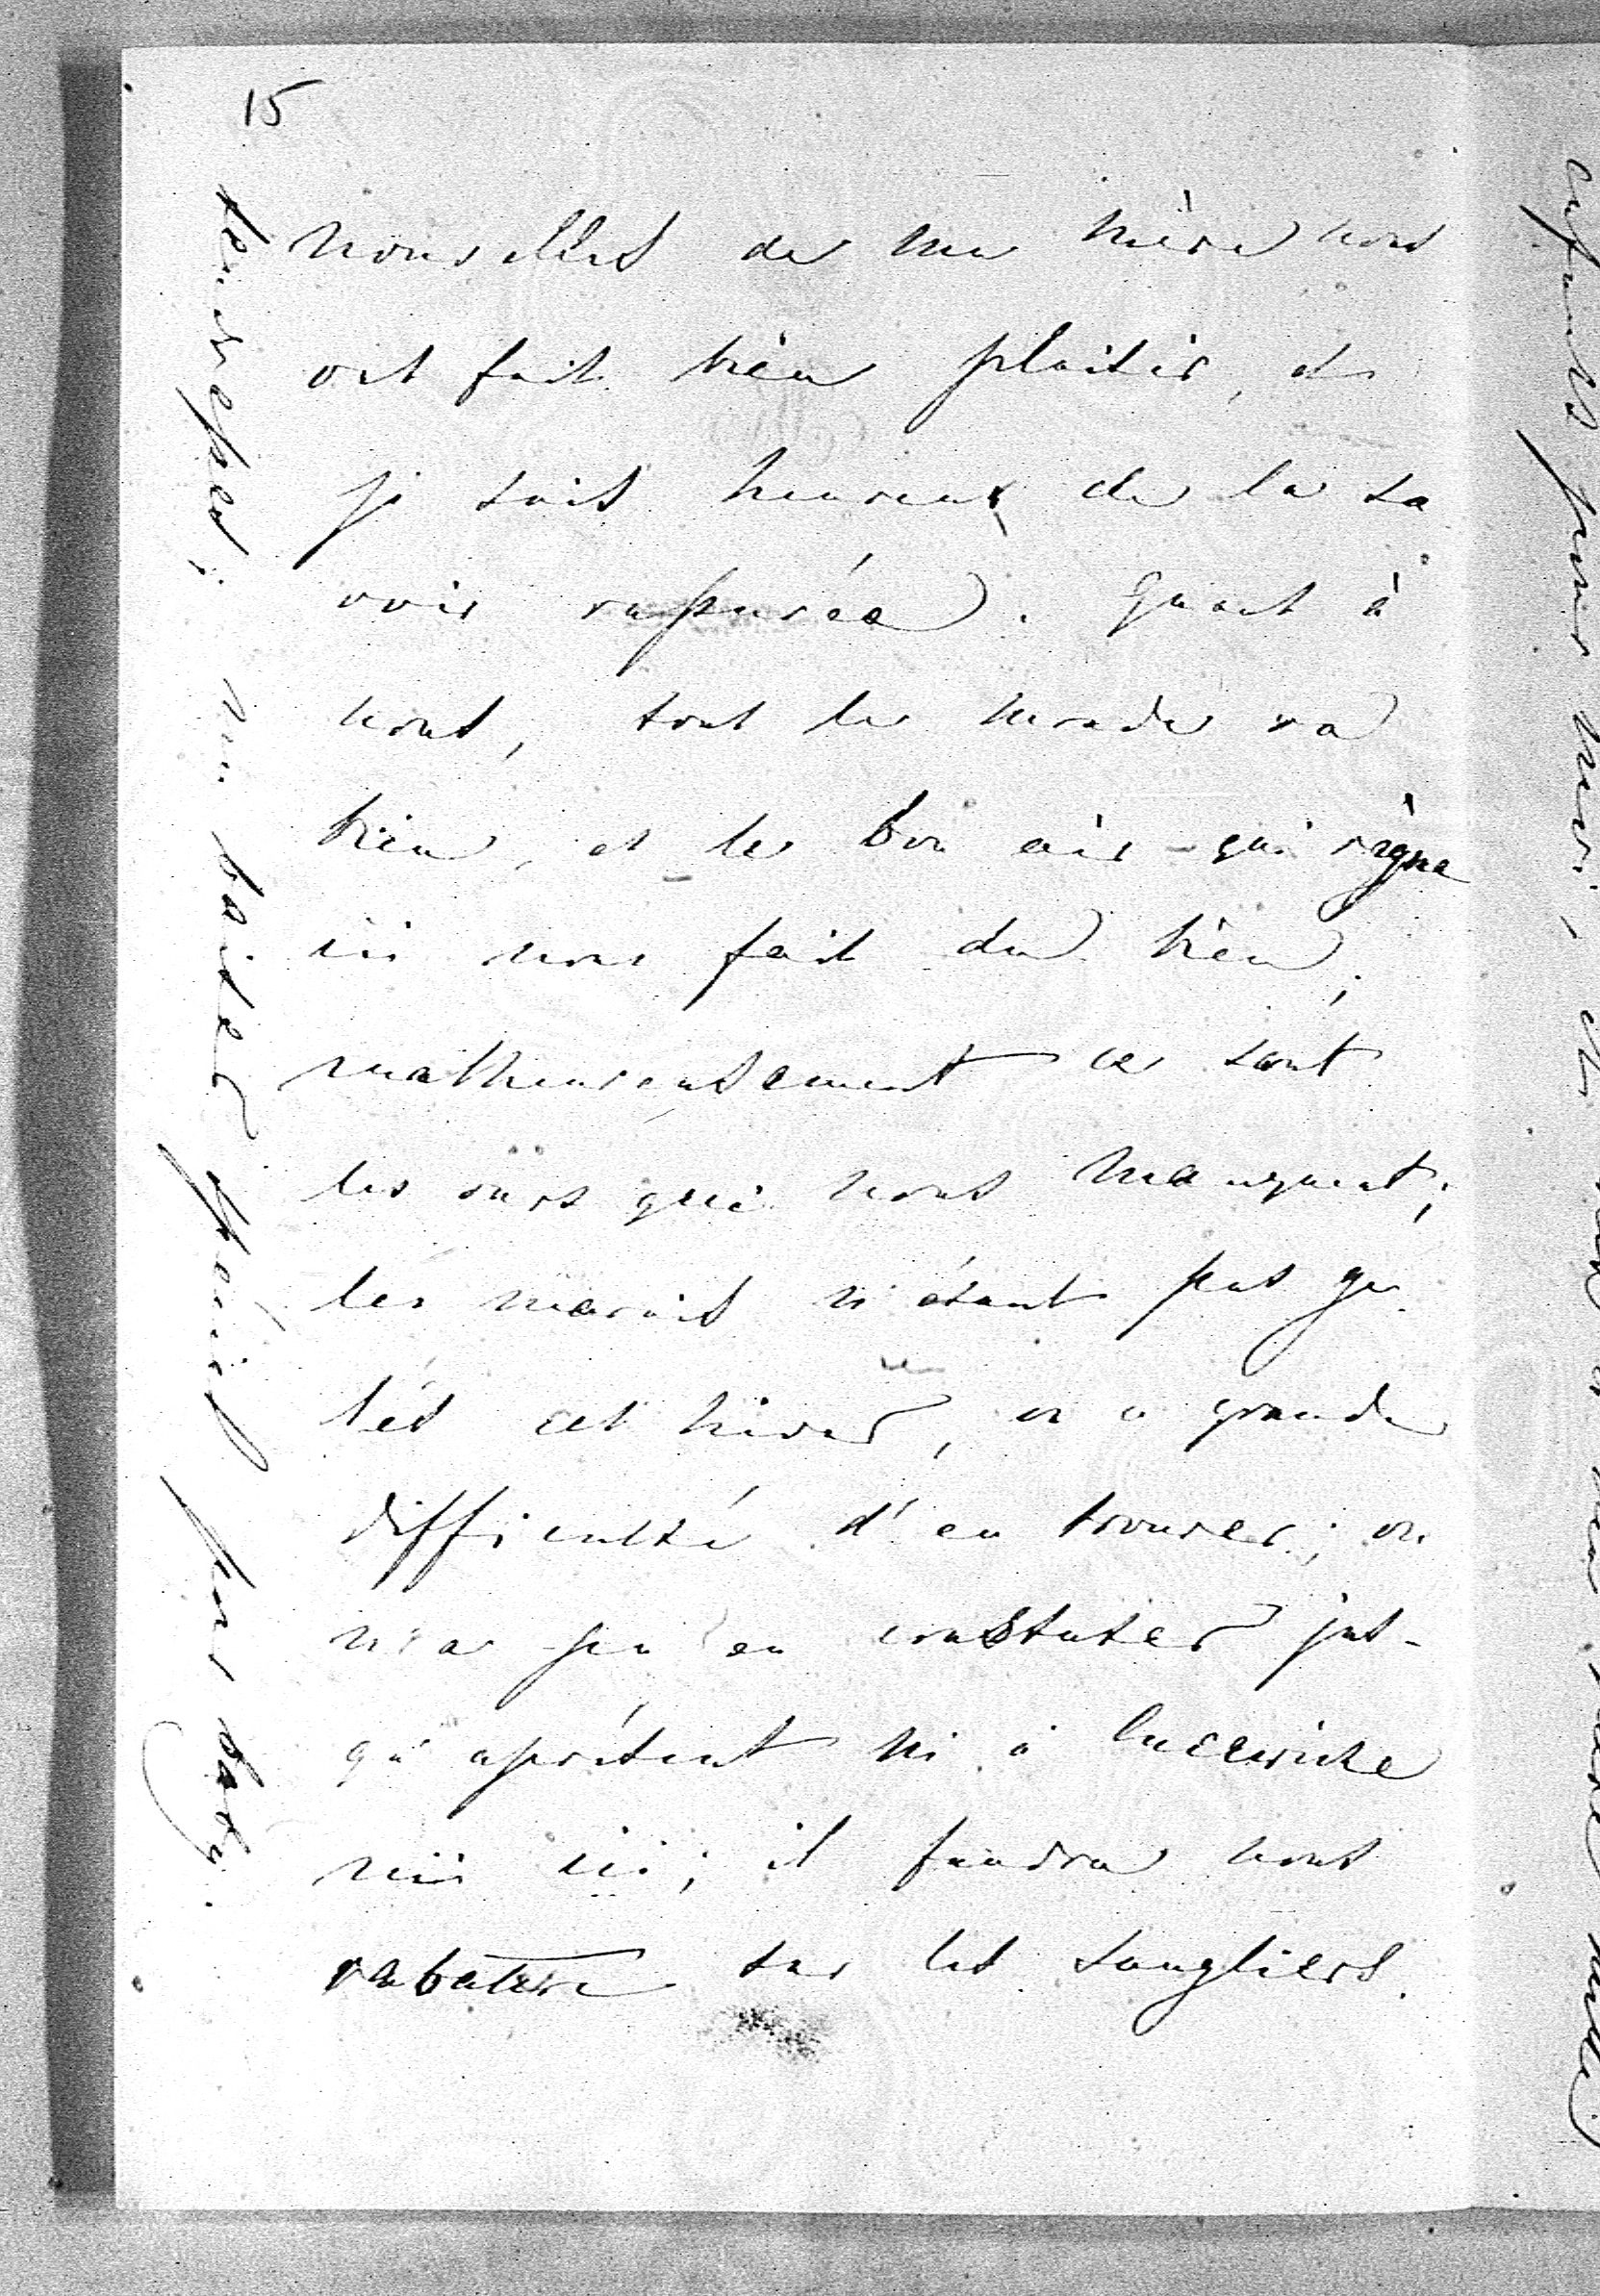 15
nouvelles de ma mère nous
ont fait bien plaisir, et
je suis heureux de la sa
voir rassurée. Quant à
nous, tout le monde va
bien, et le bon air qui règne
ici nous fait du bien;
malheureusement ce sont
les ours qui nous manquent;
les marais n'étant pas ge
lés cet hiver, on a grande
difficulté d'en trouver; on
n'a pu en constater jus-
qu'aprésent ni à
ni ici; il faudra nous
rabattre sur les sangliers.
tendresses; un baiser spécial pour baby.
enfants pour moi, et